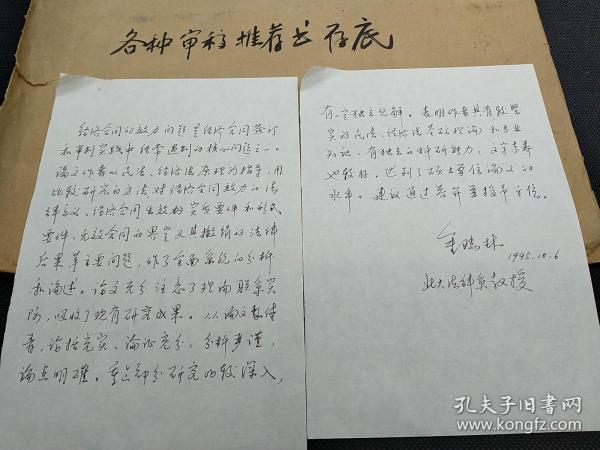 各种审稿推荐书存底
经济合同的效力问题是经济合同签订
和审判实践中经常遇到的核心问题之一。
论文作者以民法、经济法原理为指导，用
比较研究的方法，对经济合同效力的法
律意义、经济合同生效的实质要件和形式
要件、无效合同的界定及其撤销的法律
后果等主要问题，作了全面系统的分析
和论述。论文充分注意了理论联系实
际，吸收了现有研究成果。从论文整体
看，论据充实、论证充分，分析严谨，
论点明确。重点部分研究的较深入，
有一定独立见解。表明作者具有较坚
实的民法、经济法基础理论和专业
知识、有独立的科研能力，文字素养
也较好。达到了硕士学位论文的
水平。建议通过答辩并授予学位。
金瑞林
1995.10.6
北大法律系教授
孔夫子旧书网
www.kongfz.com